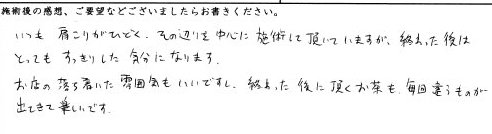 施術後の感想、ご要望などございましたらお書きください。
いつも肩こりがひどく、その辺りを中心に施術して頂いていますが、終わった後は
とってもすっきりした気分になります。
お店の落ち着いた雰囲気もいいですし、終わった後に頂くお茶も、毎回違うものが
出てきて楽しいです。